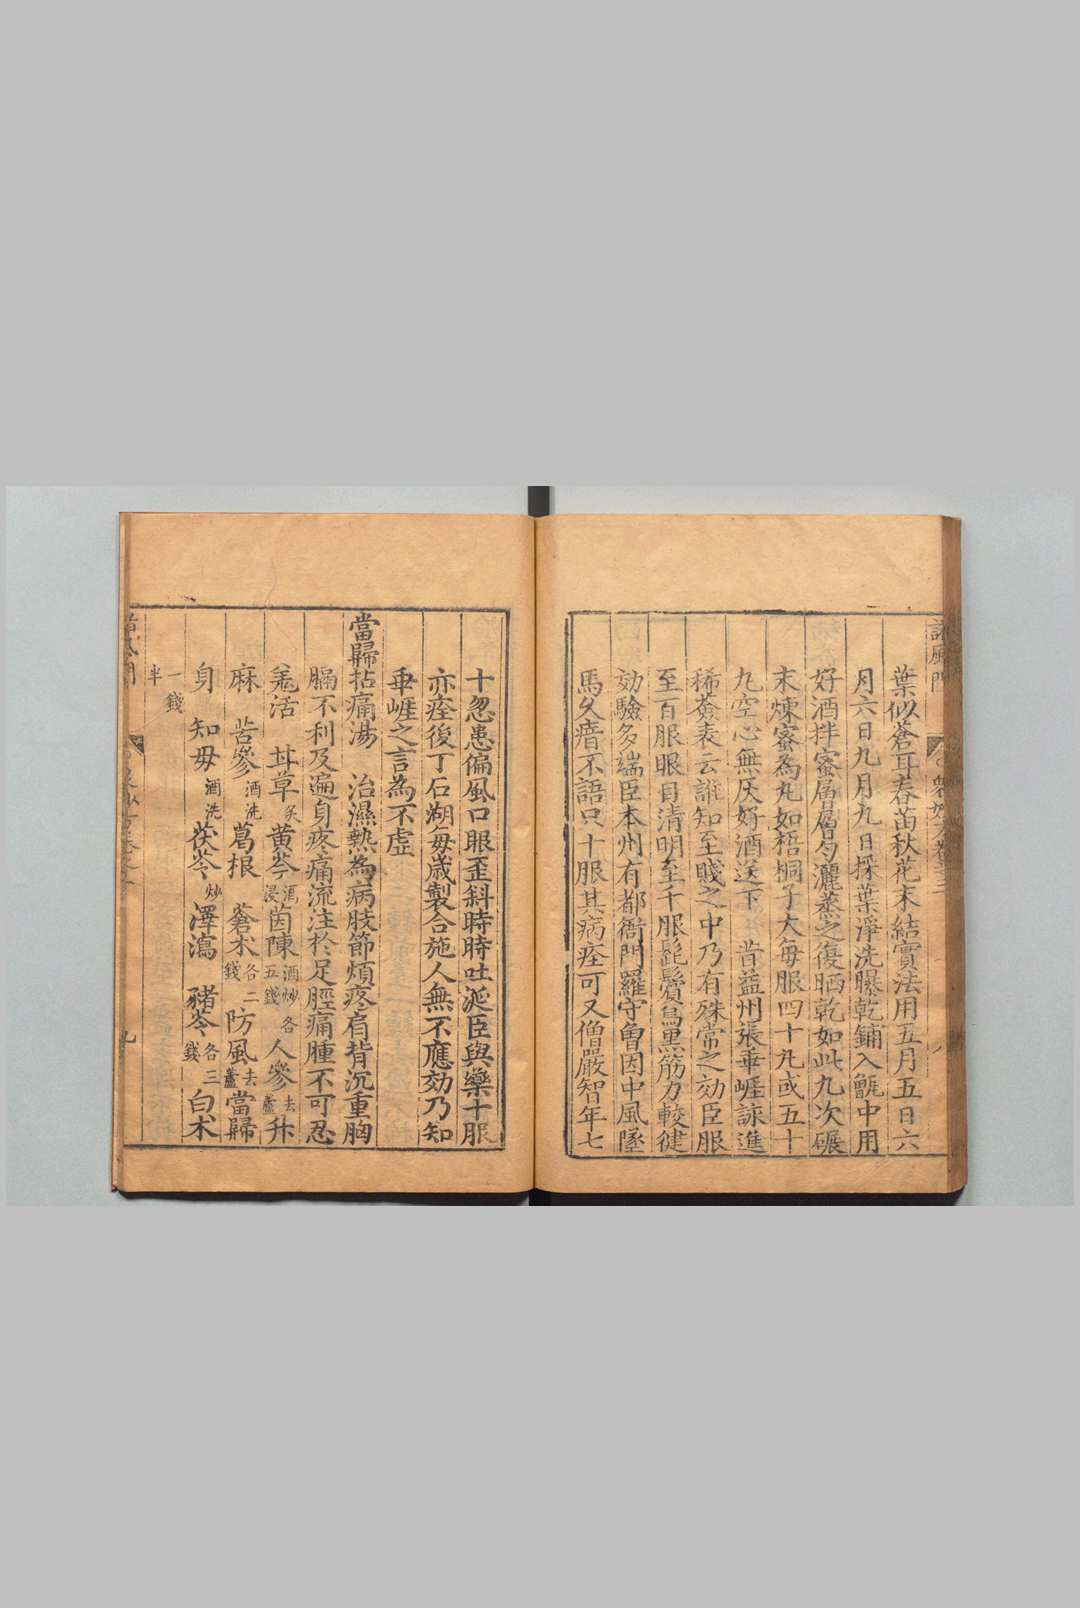 諸風門
葉似蒼耳春苗秋花末結實法用五月五日六
月六日九月九日採葉淨洗曝乾鋪入甑中用
好酒拌蜜層層勻灑蒸之復晒乾如此九次碾
末煉蜜為丸如梧桐子大每服四十九或五十
九空心無灰好酒送下 昔益州張垂崕詠進
稀薟表云誰知至賤之中乃有殊常之効臣服
至百服眼目清明至千服髭鬢烏黑筋力較健
効驗多端臣本州有都衙門羅守曾因中風墜
馬失瘖不語只十服其病痊可又僧嚴智年七
十忽患偏風口眼歪斜時時吐涎臣與藥十服
亦痊後丁石湖每歲製合施人無不應効乃知
垂崕之言為不虛
當歸拈痛湯 治濕熱為病肢節煩疼肩背沉重胸
膈不利及遍身疼痛流注於足脛痛腫不可忍
羌活 甘草炙 黃芩酒浸 茵陳酒炒各五錢 人參去蘆 升
麻 苦參酒洗 葛根 蒼朮各二錢 防風去蘆 當歸
身 知母酒洗 茯苓炒 澤瀉 豬苓各三錢 白朮
一錢半
九